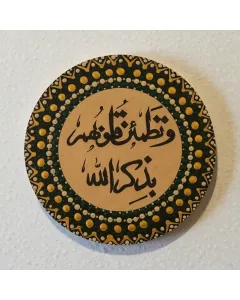 وتطمئن قلوبهم
بذكر الله